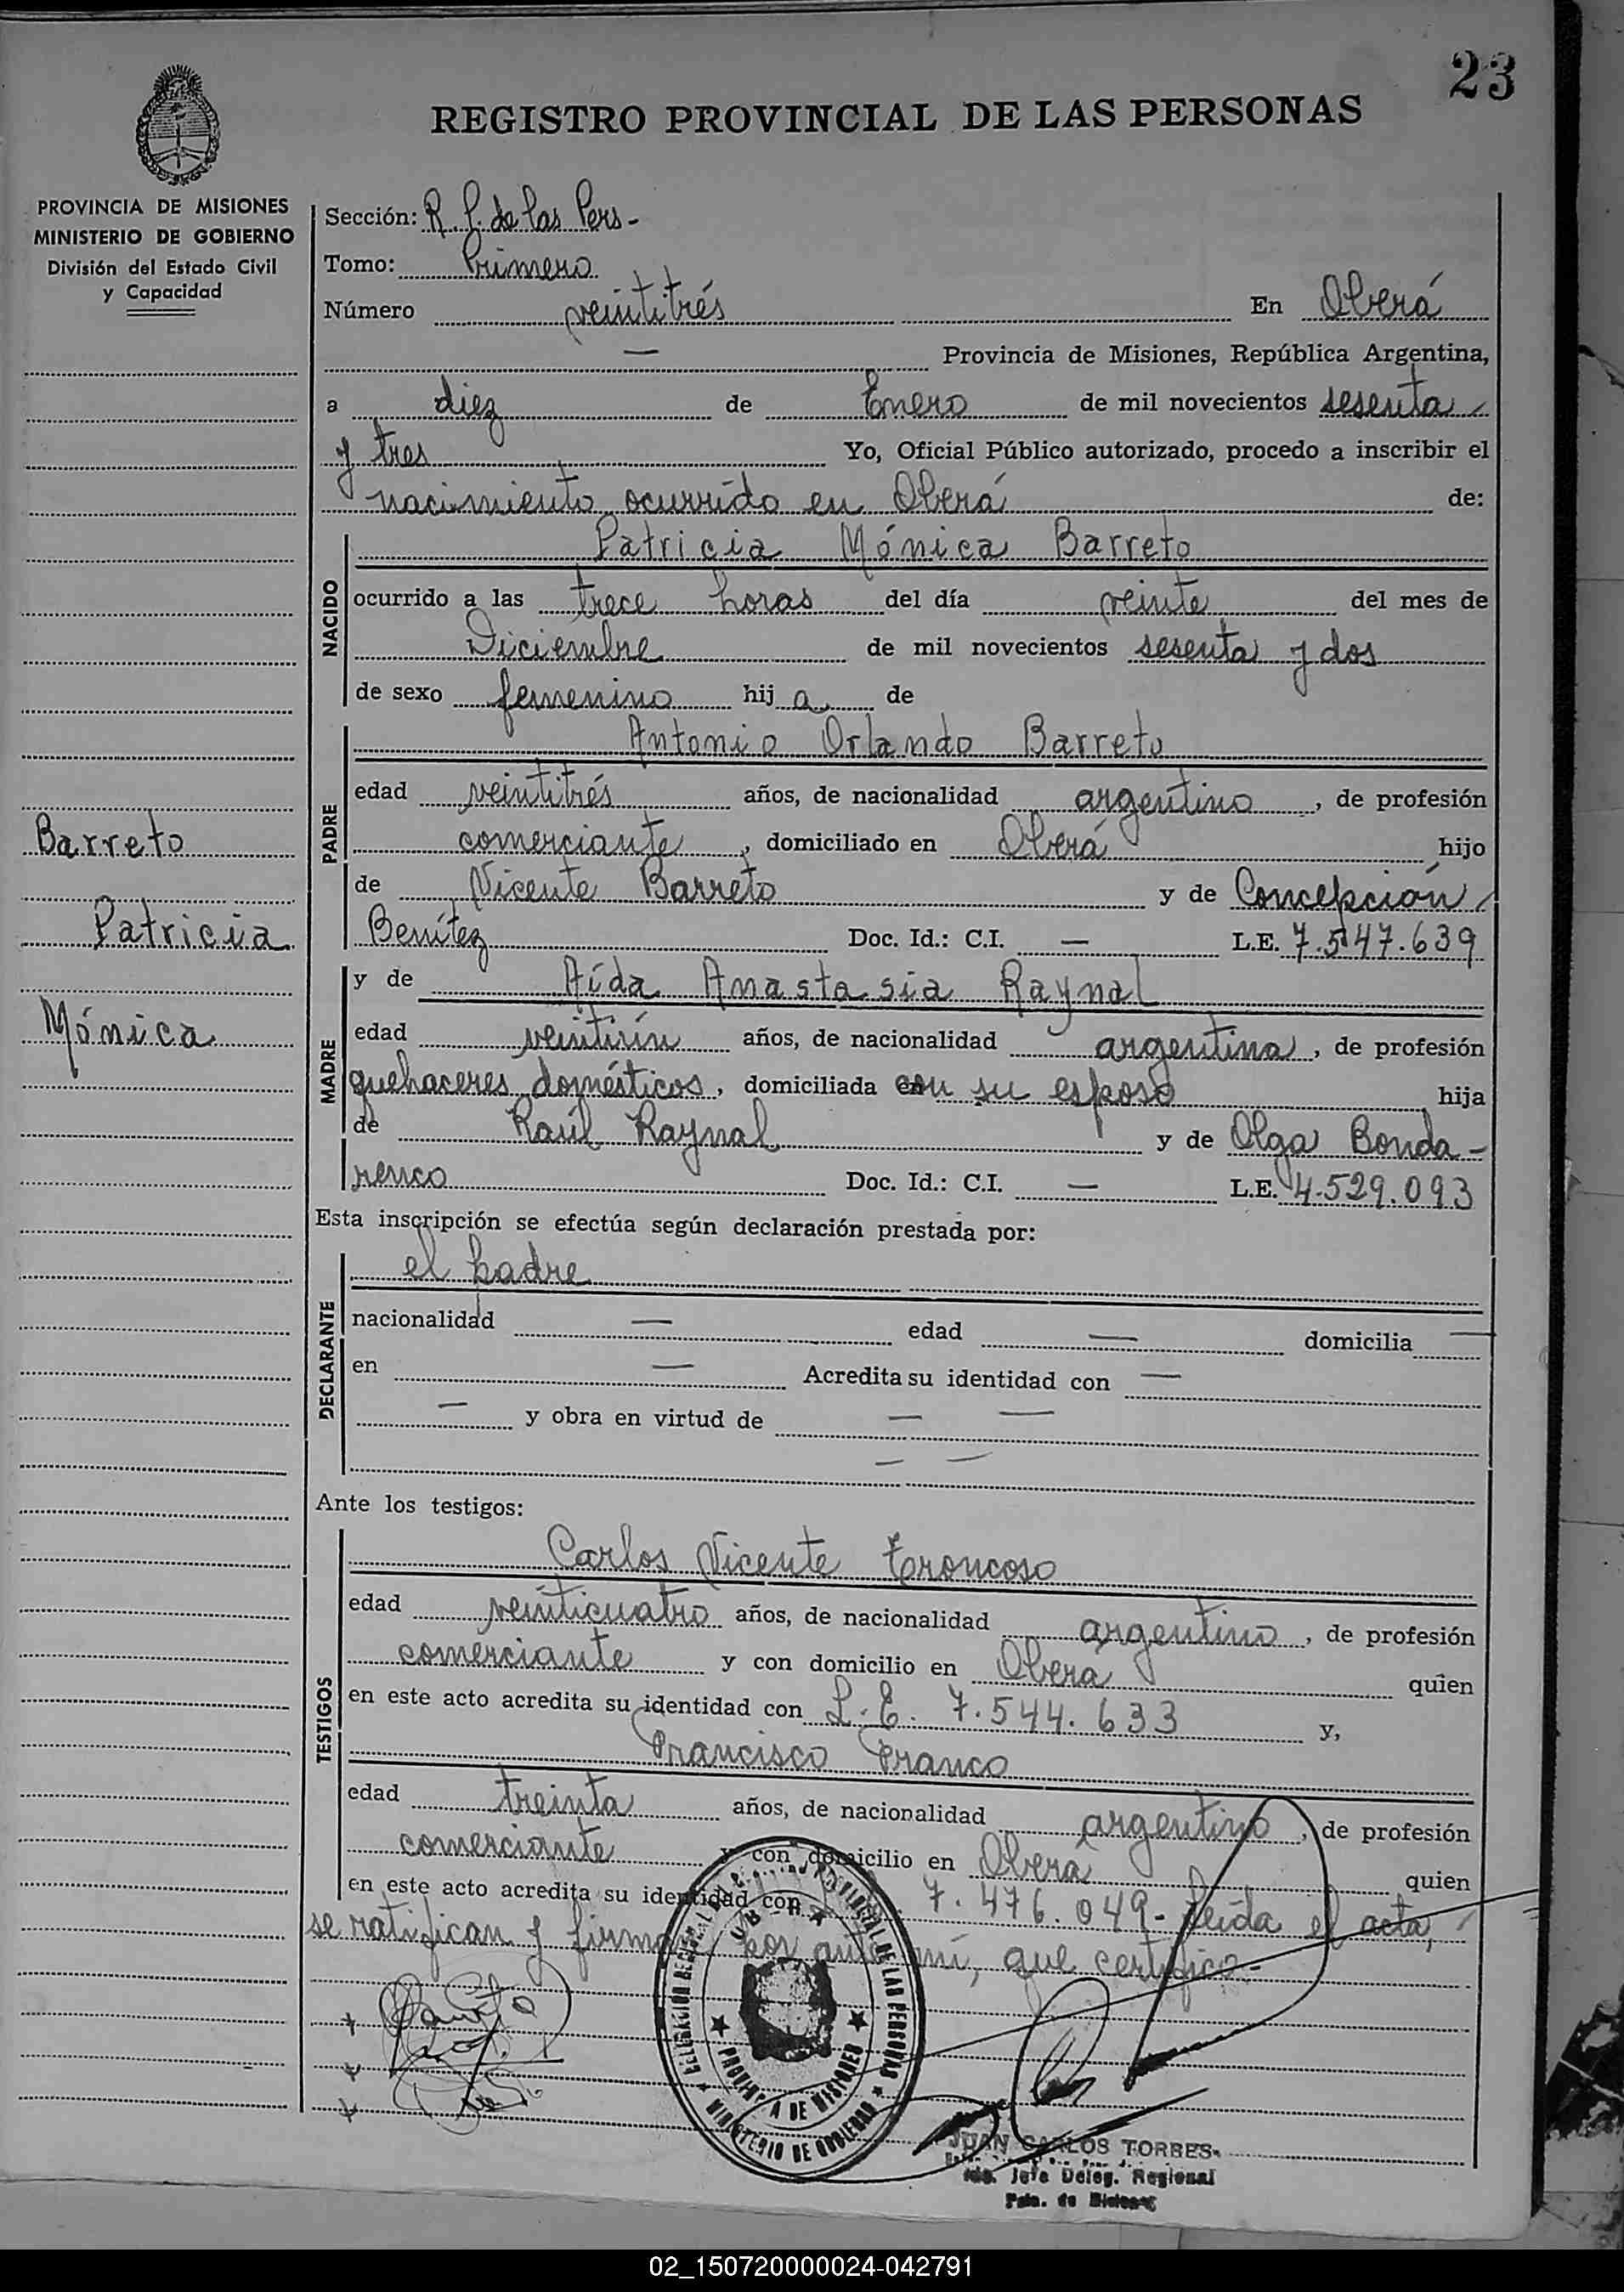 23
REGISTRO PROVINCIAL DE LAS PERSONAS
PROVINCIA DE MISIONES
MINISTERIO DE GOBIERNO
División del Estado Civil
y Capacidad
Sección: R. P. de las Pers-
Tomo: Primero
Número veintitrés En Oberá
— Provincia de Misiones, República Argentina,
a diez de Enero de mil novecientos sesenta
y tres Yo, Oficial Público autorizado, procedo a inscribir el
nacimiento ocurrido en Oberá de:
NACIDO
Patricia Mónica Barreto
ocurrido a las trece horas del día veinte del mes de
Diciembre de mil novecientos sesenta y dos
de sexo femenino hij a de
PADRE
Antonio Orlando Barreto
edad veintitrés años, de nacionalidad argentino, de profesión
comerciante, domiciliado en Oberá hijo
de Vicente Barreto y de Concepción
Benítez Doc. Id.: C.I. — L.E. 7.547.639
Barreto
Patricia
Mónica
MADRE
y de Aída Anastasia Raynal
edad años, de nacionalidad argentina, de profesión
quehaceres domésticos, domiciliada con su esposo hija
de Raúl Raynal y de Olga Bonda-
renco Doc. Id.: C.I. — L.E. 4.529.093
Esta inscripción se efectúa según declaración prestada por:
DECLARANTE
el padre
nacionalidad — edad — domicilia —
en — Acredita su identidad con —
— y obra en virtud de — —
— —
Ante los testigos:
TESTIGOS
Carlos Vicente Troncoso
edad veinticuatro años, de nacionalidad argentino, de profesión
comerciante y con domicilio en Oberá quien
en este acto acredita su identidad con L.E. 7.544.633 y,
Francisco Franco
edad treinta años, de nacionalidad argentino, de profesión
comerciante y con domicilio en Oberá quien
en este acto acredita su identidad con 7.476.049- Leída el acta,
se ratifican y firman por ante mí, que certifico.-
DELEGACIÓN REGIONAL DEL REGISTRO PROVINCIAL DE LAS PERSONAS
OBERA
PROVINCIA DE MISIONES
MINISTERIO DE GOBIERNO
JUAN CARLOS TORRES
Jefe Deleg. Regional
Pcia. de Misiones
02_150720000024-042791